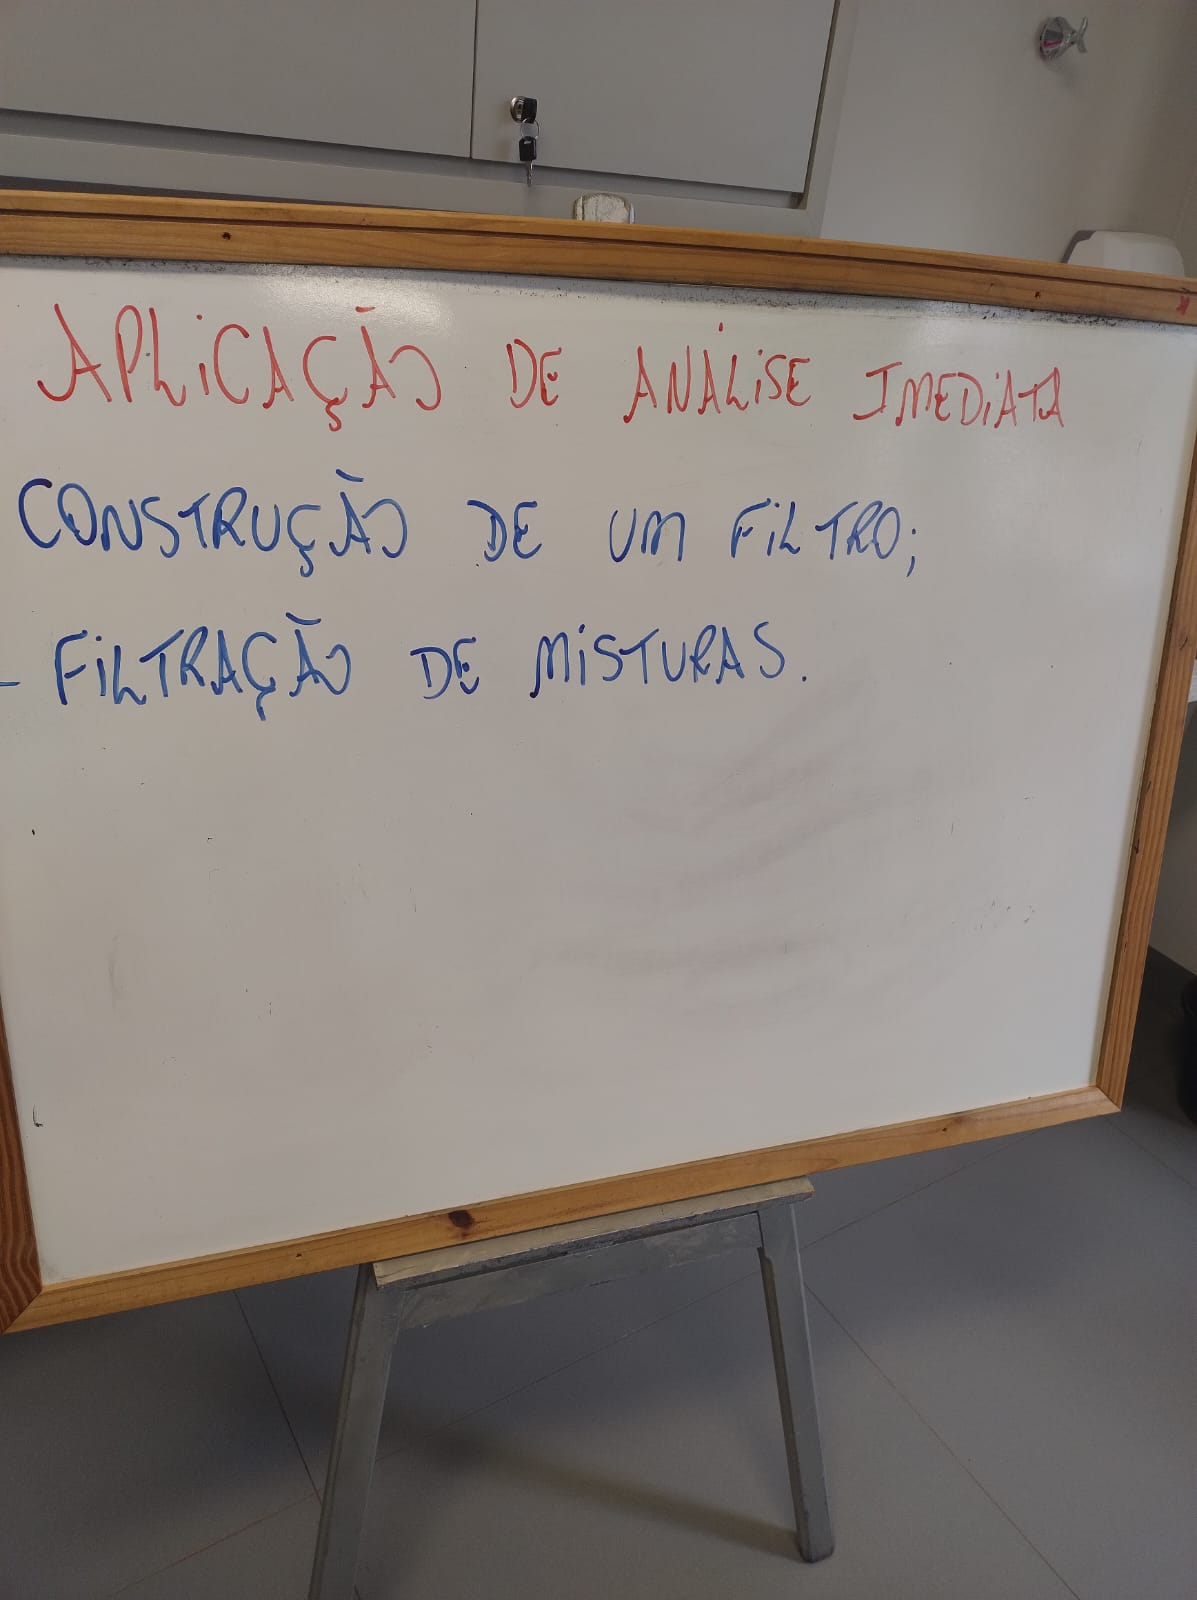 APLICAÇÃO DE ANÁLISE IMEDIATA
CONSTRUÇÃO DE UM FILTRO;
- FILTRAÇÃO DE MISTURAS.